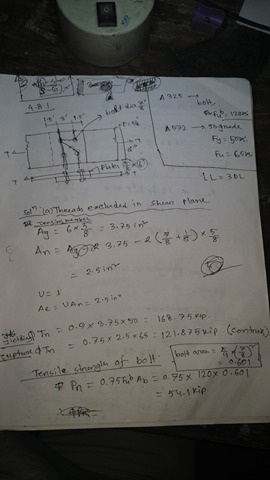 4.8.1
bolt dia 7/8"
A325 → bolt
Fu^b = 120ksi
A572 → 50 grade
Fy = 50ksi
Fu = 65ksi
LL = 3DL
Solⁿ (a) Threads excluded in shear plane.
Tension member
Ag = 6 × 5/8 = 3.75 in²
An = 3.75 - 2 (7/8 + 1/8) × 5/8
= 2.5 in²
U = 1
Ae = UAn = 2.5 in²
Yielding ϕ Tn = 0.9 × 3.75 × 50 = 168.75 kip
rupture ϕ Tn = 0.75 × 2.5 × 65 = 121.875 kip (control)
Tensile strength of bolt:
bolt area = π/4 × (7/8)² = 0.601
ϕ Rn = 0.75 Fu^b Ab = 0.75 × 120 × 0.601
= 54.1 kip